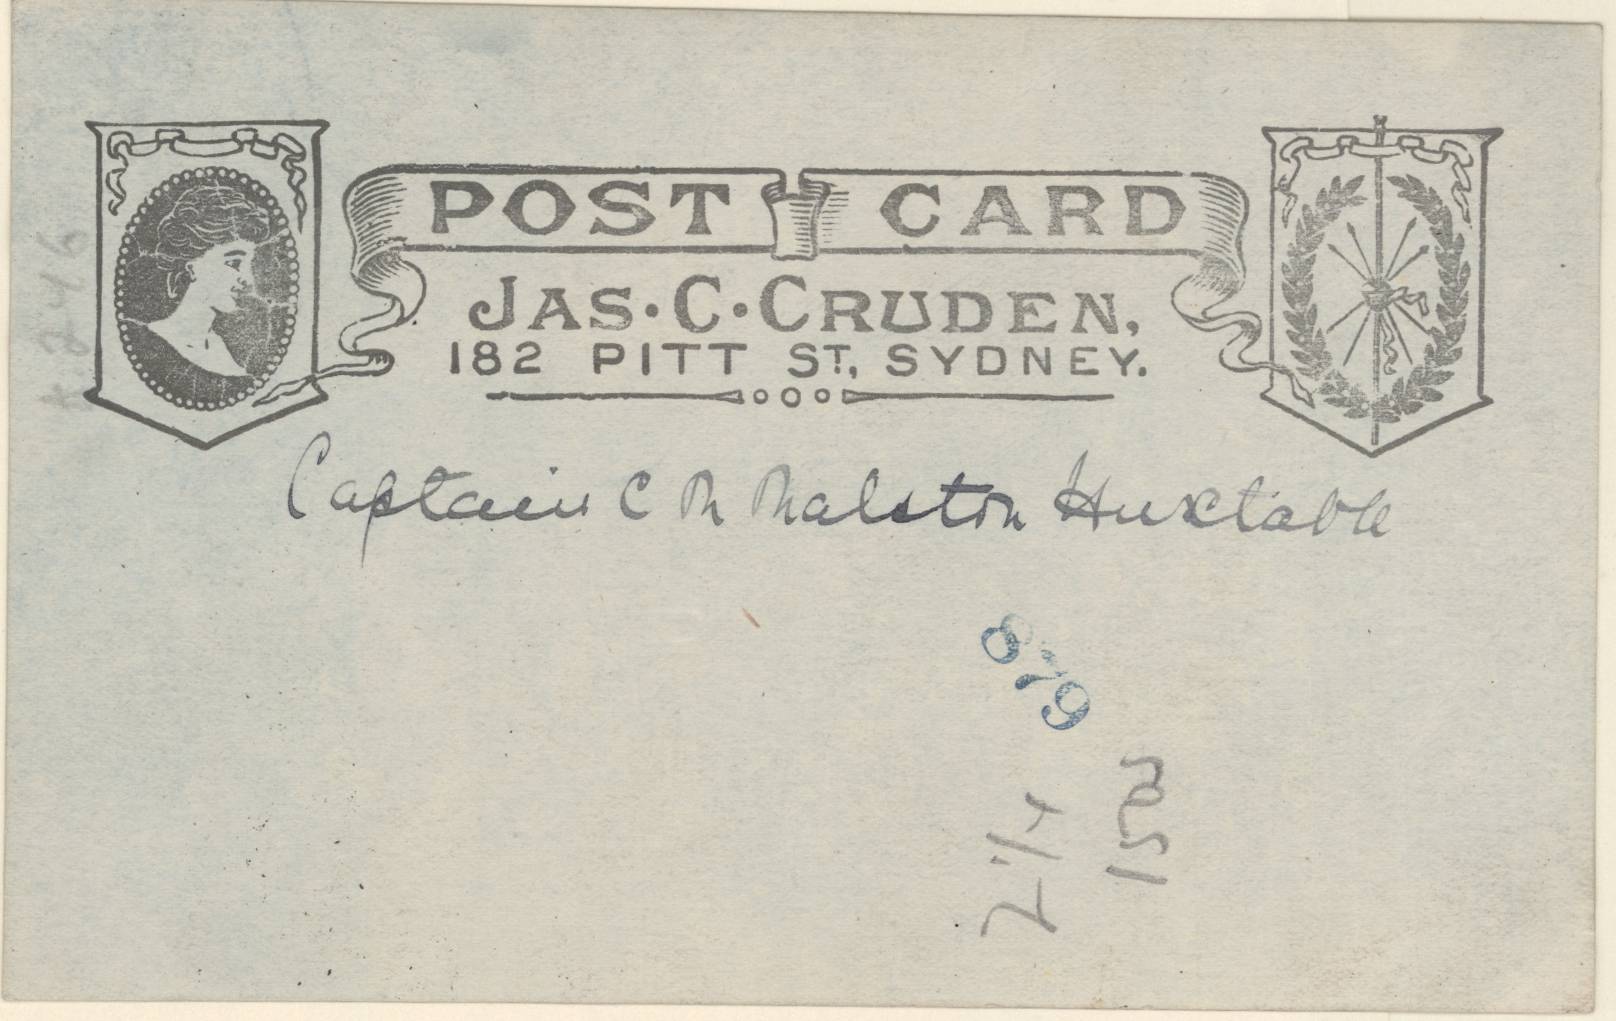 POST CARD
JAS. C. CRUDEN,
182 PITT ST., SYDNEY.
Captain C M Malston Huxtable
879
2 1/4
152